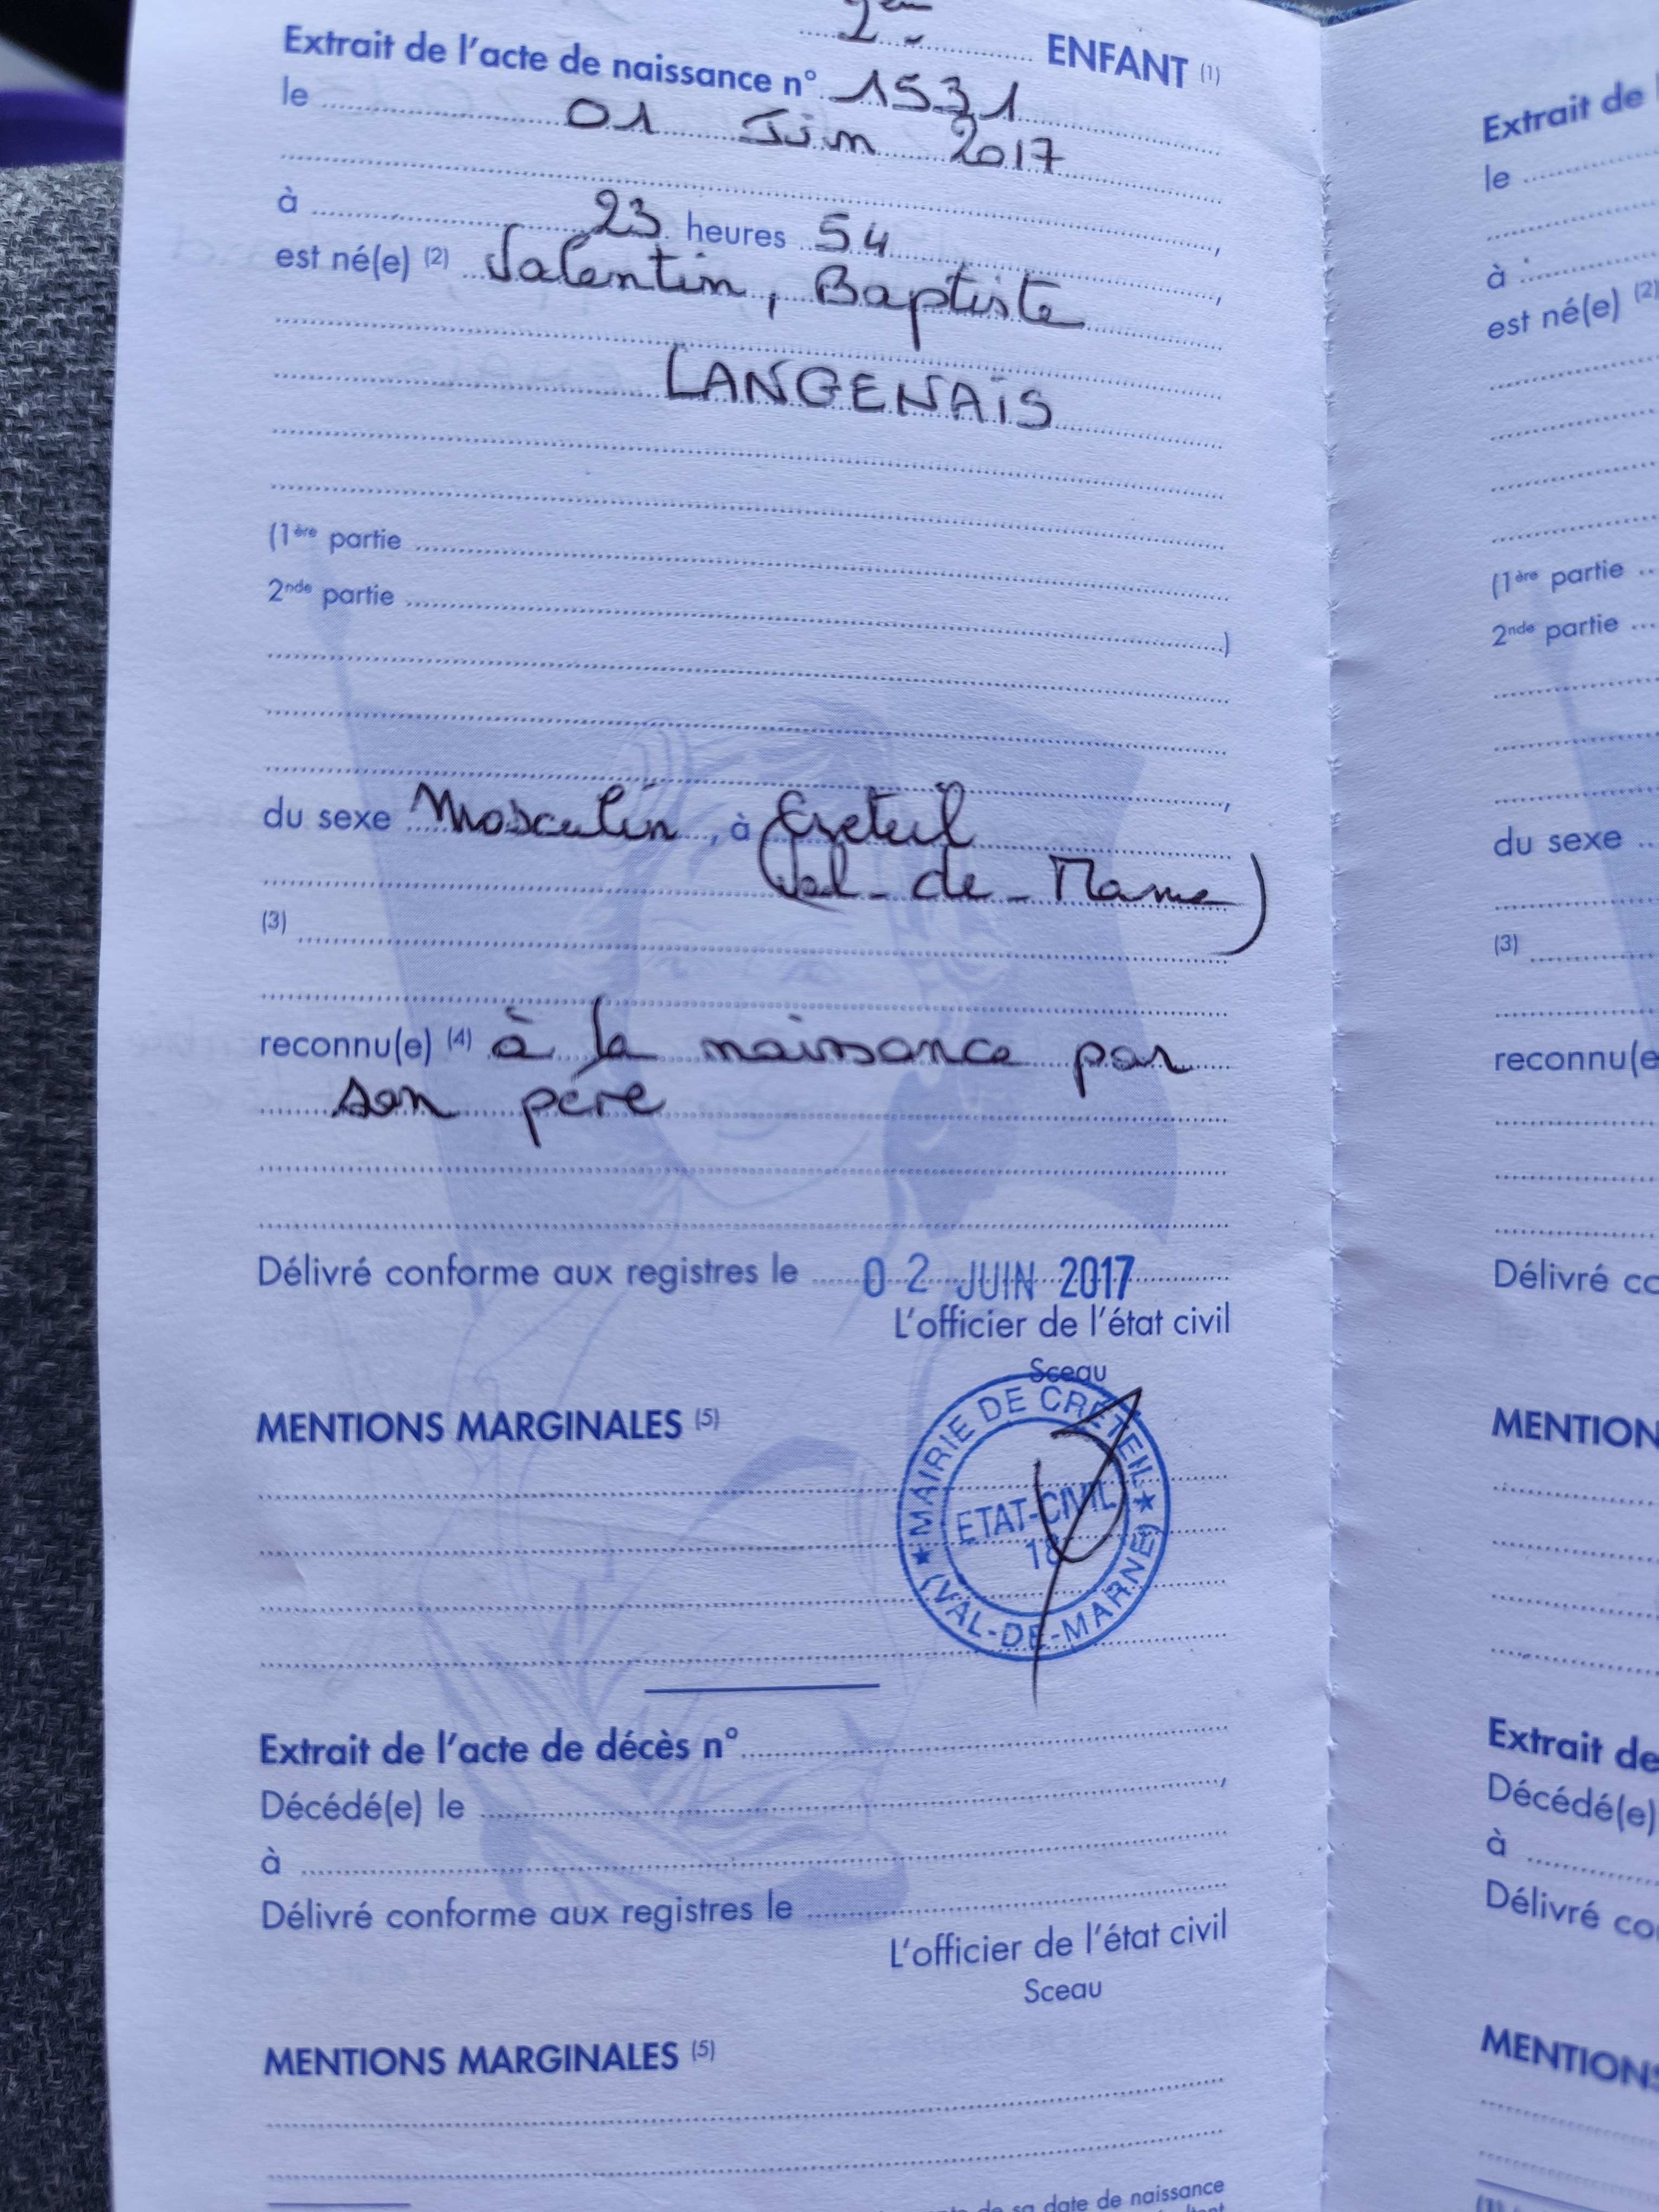 2ème ENFANT (1)
Extrait de l'acte de naissance n° 1531
le 01 Juin 2017
à 23 heures 54,
est né(e) (2) Valentin, Baptiste,
LANGENAIS
(1ère partie
2nde partie )
du sexe Masculin, à Créteil
(Val-de-Marne)
(3)
reconnu(e) (4) à la naissance par
son père
Délivré conforme aux registres le 02 JUIN 2017
L'officier de l'état civil
Sceau
MENTIONS MARGINALES (5)
MAIRIE DE CRÉTEIL
ETAT-CIVIL
(VAL-DE-MARNE)
Extrait de l'acte de décès n°
Décédé(e) le ,
à
Délivré conforme aux registres le
L'officier de l'état civil
Sceau
MENTIONS MARGINALES (5)
de sa date de naissance
Extrait de
le
à
est né(e) (2)
(1ère partie
2nde partie
du sexe
(3)
reconnu(e
Délivré co
MENTION
Extrait de
Décédé(e)
à
Délivré co
MENTIONS